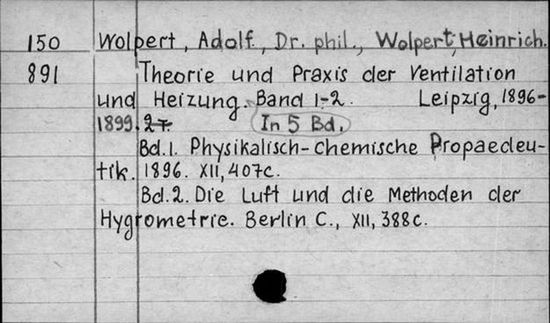 150 Wolpert, Adolf, Dr. phil., Wolpert, Heinrich.
891 Theorie und Praxis der Ventilation
und Heizung. Band 1-2. Leipzig, 1896-
1899. 2 т. In 5 Bd.
Bd. 1. Physikalisch-Chemische Propaedeu-
tik. 1896. XII, 407c.
Bd. 2. Die Luft und die Methoden der
Hygrometrie. Berlin C., XII, 388c.